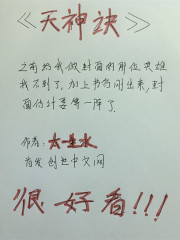 《天神诀》
之前给我做封面的那位英雄
找不到了,加上书名刚出来,封
面估计要等一阵了.
作者:大圣水
首发创世中文网
很好看!!!